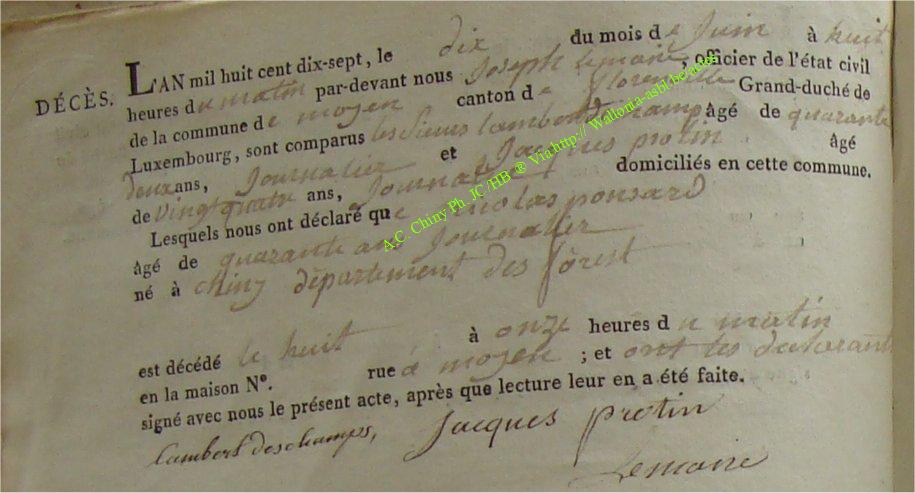 DÉCÈS. L'AN mil huit cent dix-sept, le dix du mois de Juin à huit
heures du matin par-devant nous Joseph Lemaire, officier de l'état civil
de la commune de moyen canton de florenville Grand-duché de
Luxembourg, sont comparus les Sieurs lambert âgé de quarante
deux ans, Journalier et Jacques protin âgé
de vingt quatre ans, Journalier domiciliés en cette commune.
Lesquels nous ont déclaré que nicolas ponsard
âgé de quarante ans Journalier
né à chiny département des forest
est décédé le huit à onze heures du matin
en la maison N°. rue à moyen ; et ont les déclarants
signé avec nous le présent acte, après que lecture leur en a été faite.
Lambert deschamps, Jacques protin
Lemaire
A.C. Chiny Ph. JC/HB ® Via http:// Wallonia-asbl.be